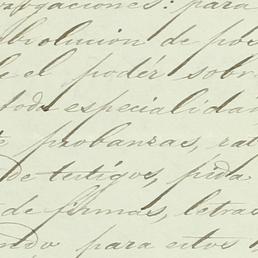 rogaciones: para
absolucion de pos
e el podér sobre
toda especialidad
e probanzas, rat
de testigos, pida
de firmas, letras
ando para estos